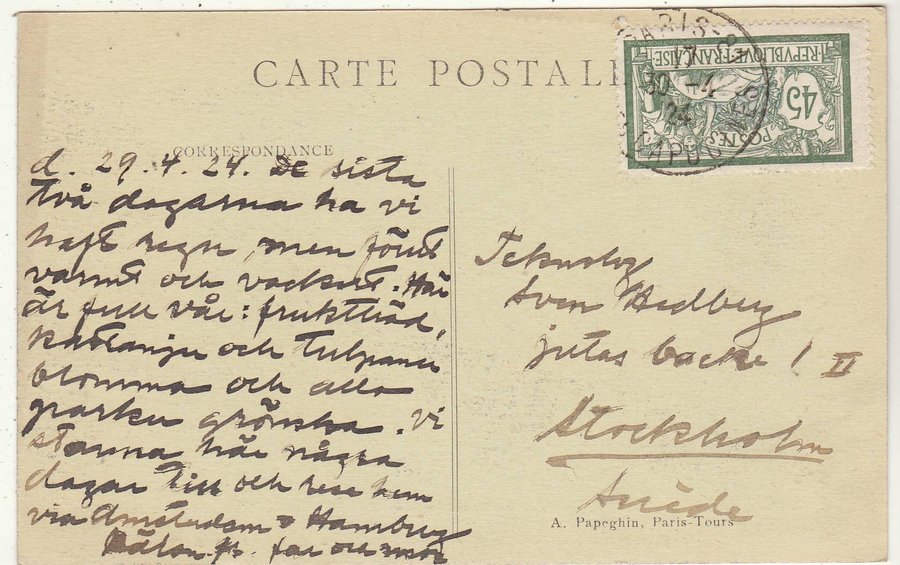 CARTE POSTALE
PARIS
30 -4
24
CAPUCINES
REPVBLIQVE FRANÇAISE
45
POSTES
CORRESPONDANCE
d. 29.4.24. De sista
två dagarna ha vi
haft regn, men förut
varmt och vackert. Här
är full vår: fruktträd,
kastanjer och tulpaner
blomma och alla
parker grönska. Vi
stanna här några
dagar till och resa hem
via Amsterdam o Hamburg
far och mor
Teknolog
Sven Hedberg
Götas backe 1 II
Stockholm
Suède
A. Papeghin, Paris-Tours